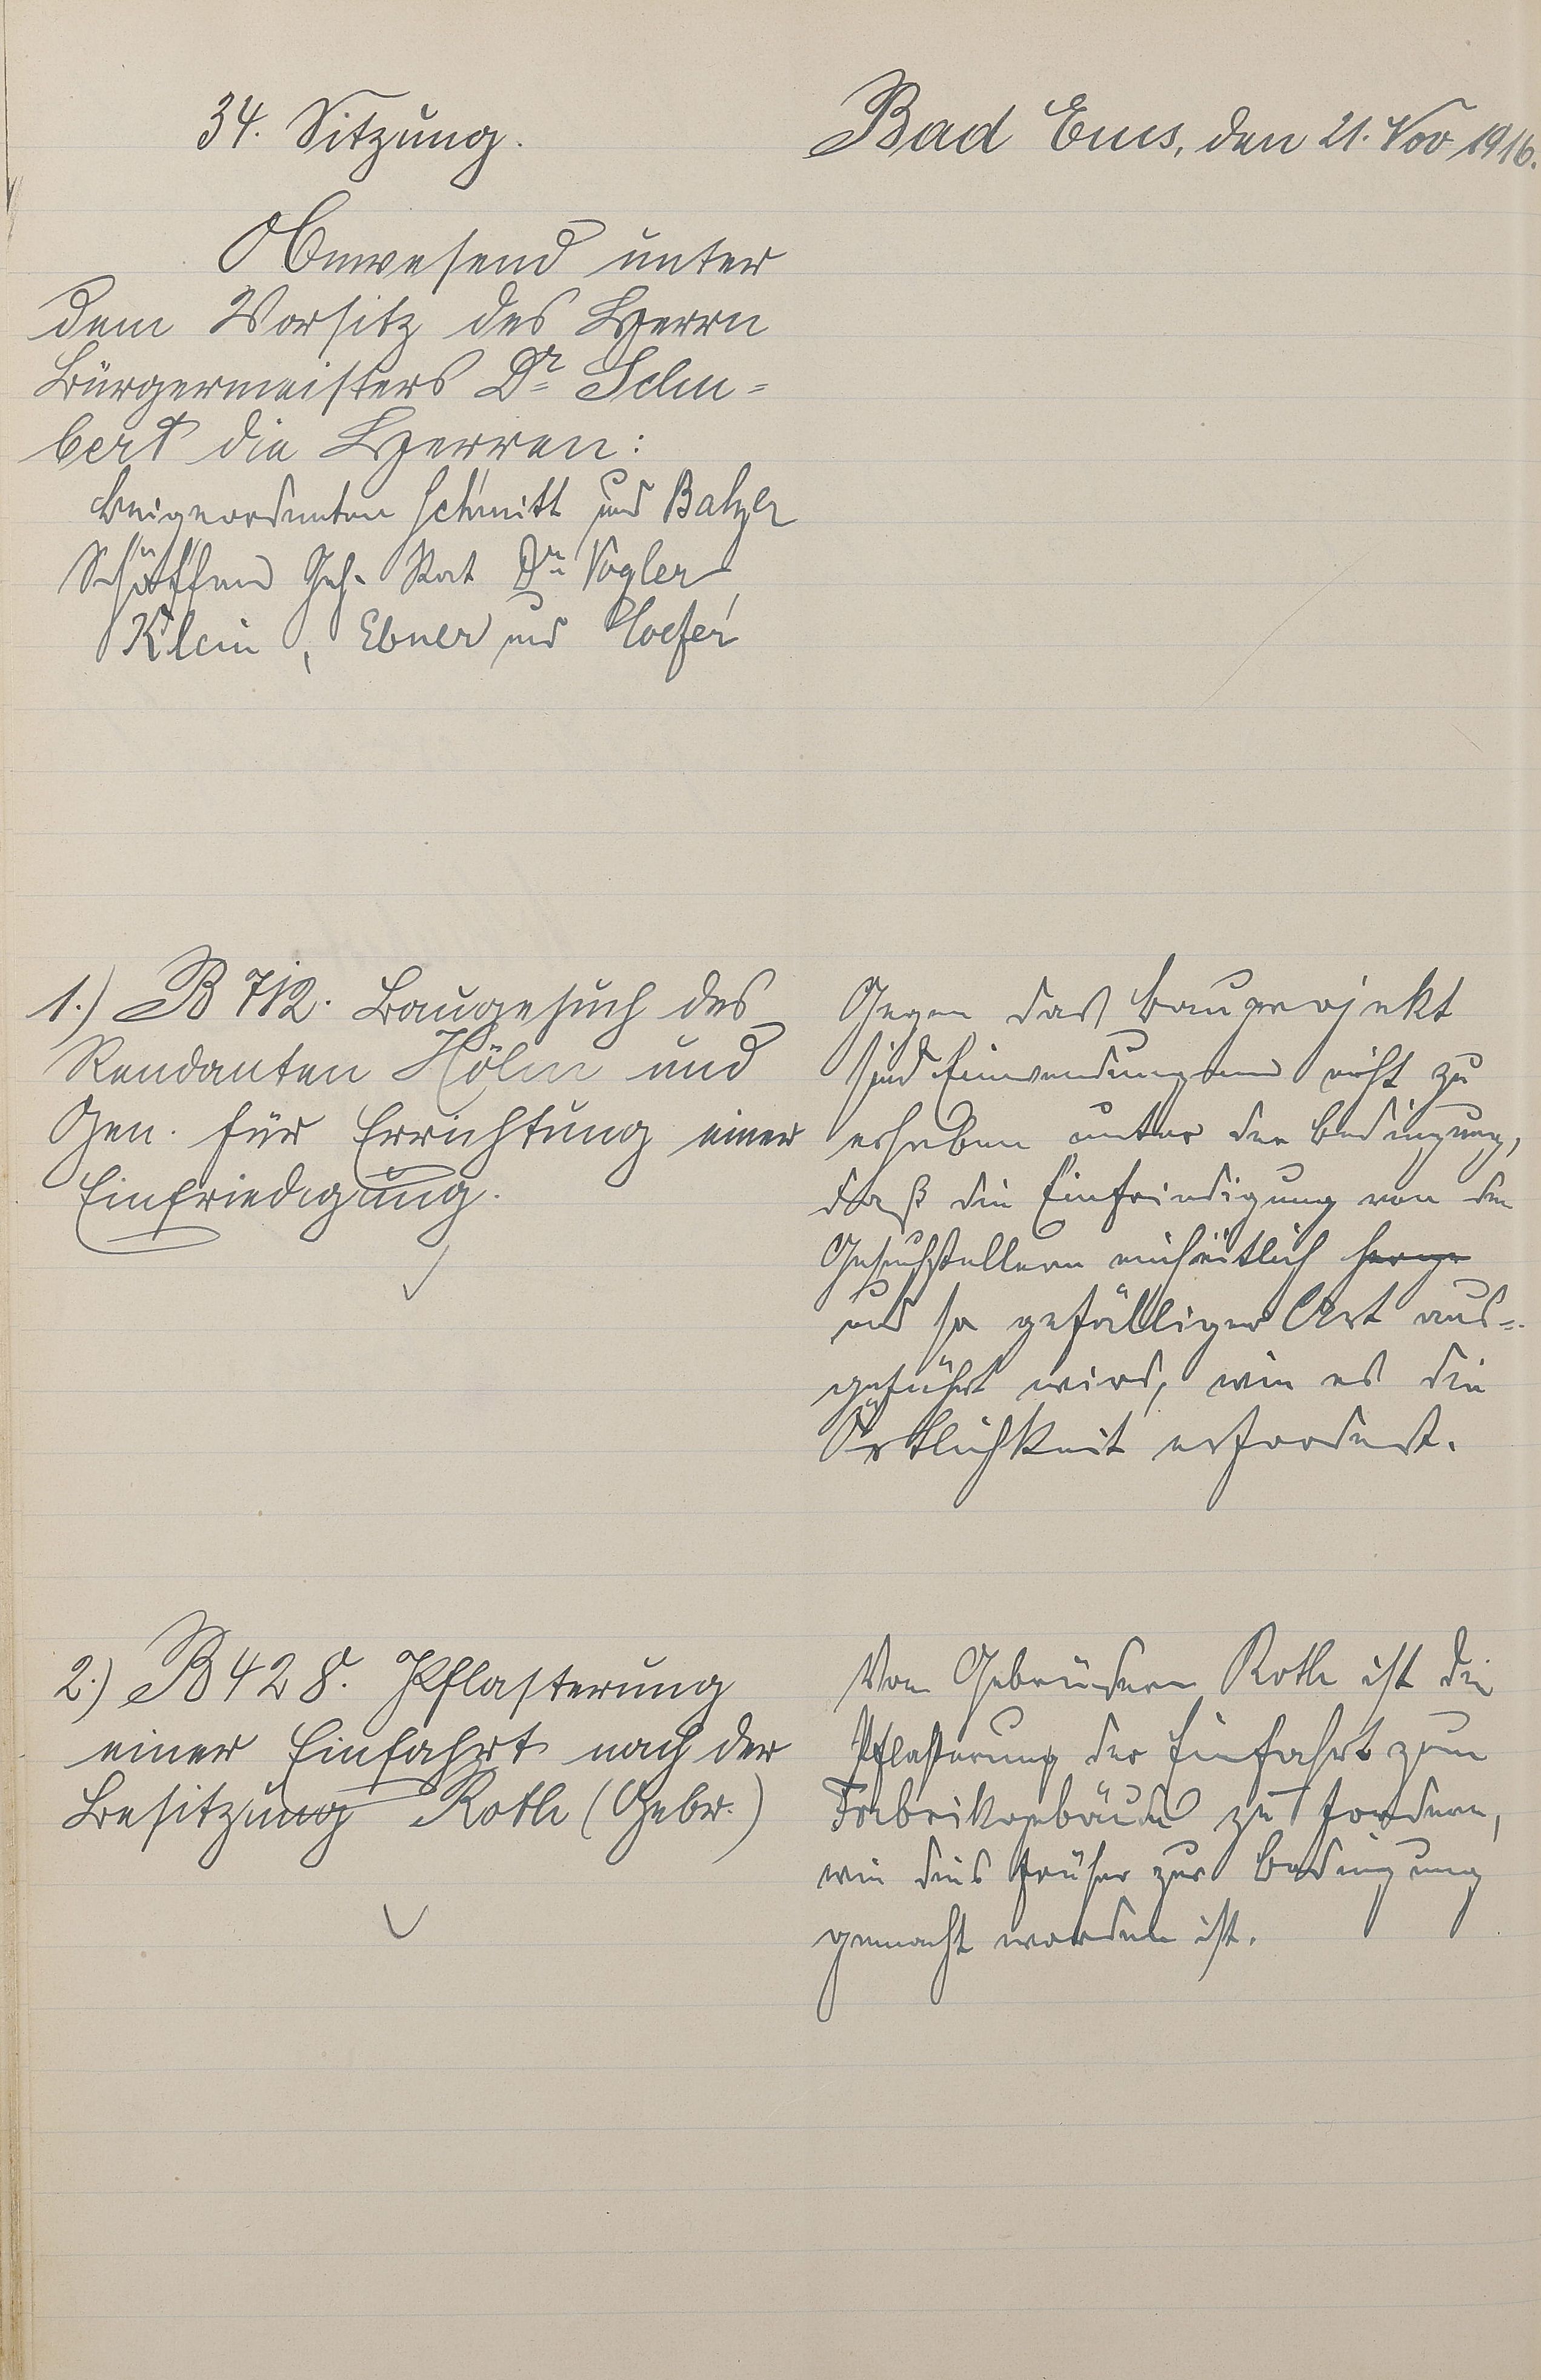 34. Sitzung.
Bad Ems, den 21. Nov 1916.
Anwesend unter
dem Vorsitz des Herrn
Bürgermeisters Dr. Schu=
bert die Herren:
Beigeordneten Schmitt und Balzer
Schöffen Geh. Rat Dr. Vogler,
Klein, Ebner und
1.) B 712. Baugesuch des
Rendanten Höhn und
Gen. für Errichtung einer
Einfriedigung.
Gegen das Bauprojekt
sind Einwendungen nicht zu
erheben unter der Bedingung,
daß die Einfriedigung von den
Gesuchstellern einheitlich herge
und in gefälliger Art aus=
geführt wird, wie es die
Örtlichkeit erfordert.
2.) B 428. Pflasterung
einer Einfahrt nach der
Besitzung Roth (Gebr.)
Von Gebrüdern Roth ist die
Pflasterung der Einfahrt zum
Fabrikgebäude zu fordern,
wie dies früher zur Bedingung
gemacht worden ist.